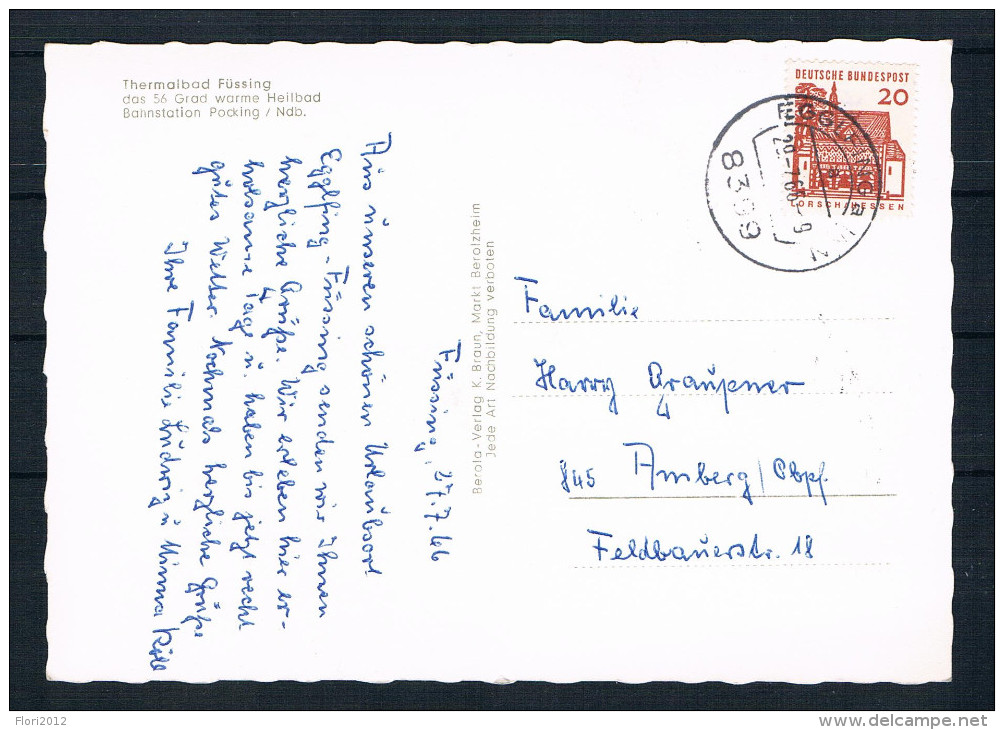 Thermalbad Füssing
das 56 Grad warme Heilbad
Bahnstation Pocking / Ndb.
Füssing, 27.7.66
Aus unseren schönen Urlaubsort
Egglfing - Füssing senden wir Ihnen
herzliche Grüße. Wir erleben hier er-
holsame Tage u. haben bis jetzt recht
gutes Wetter. Nochmals herzliche Grüße
Ihre Familie Ludwig u Minna
Berola-Verlag K. Braun, Markt Berolzheim
Jede Art Nachbildung verboten
DEUTSCHE BUNDESPOST
20
LORSCH/HESSEN
8399
Familie
Harry Graupner
845 Amberg/Obpf.
Feldbauerstr. 18
Flori2012
delcampe.net